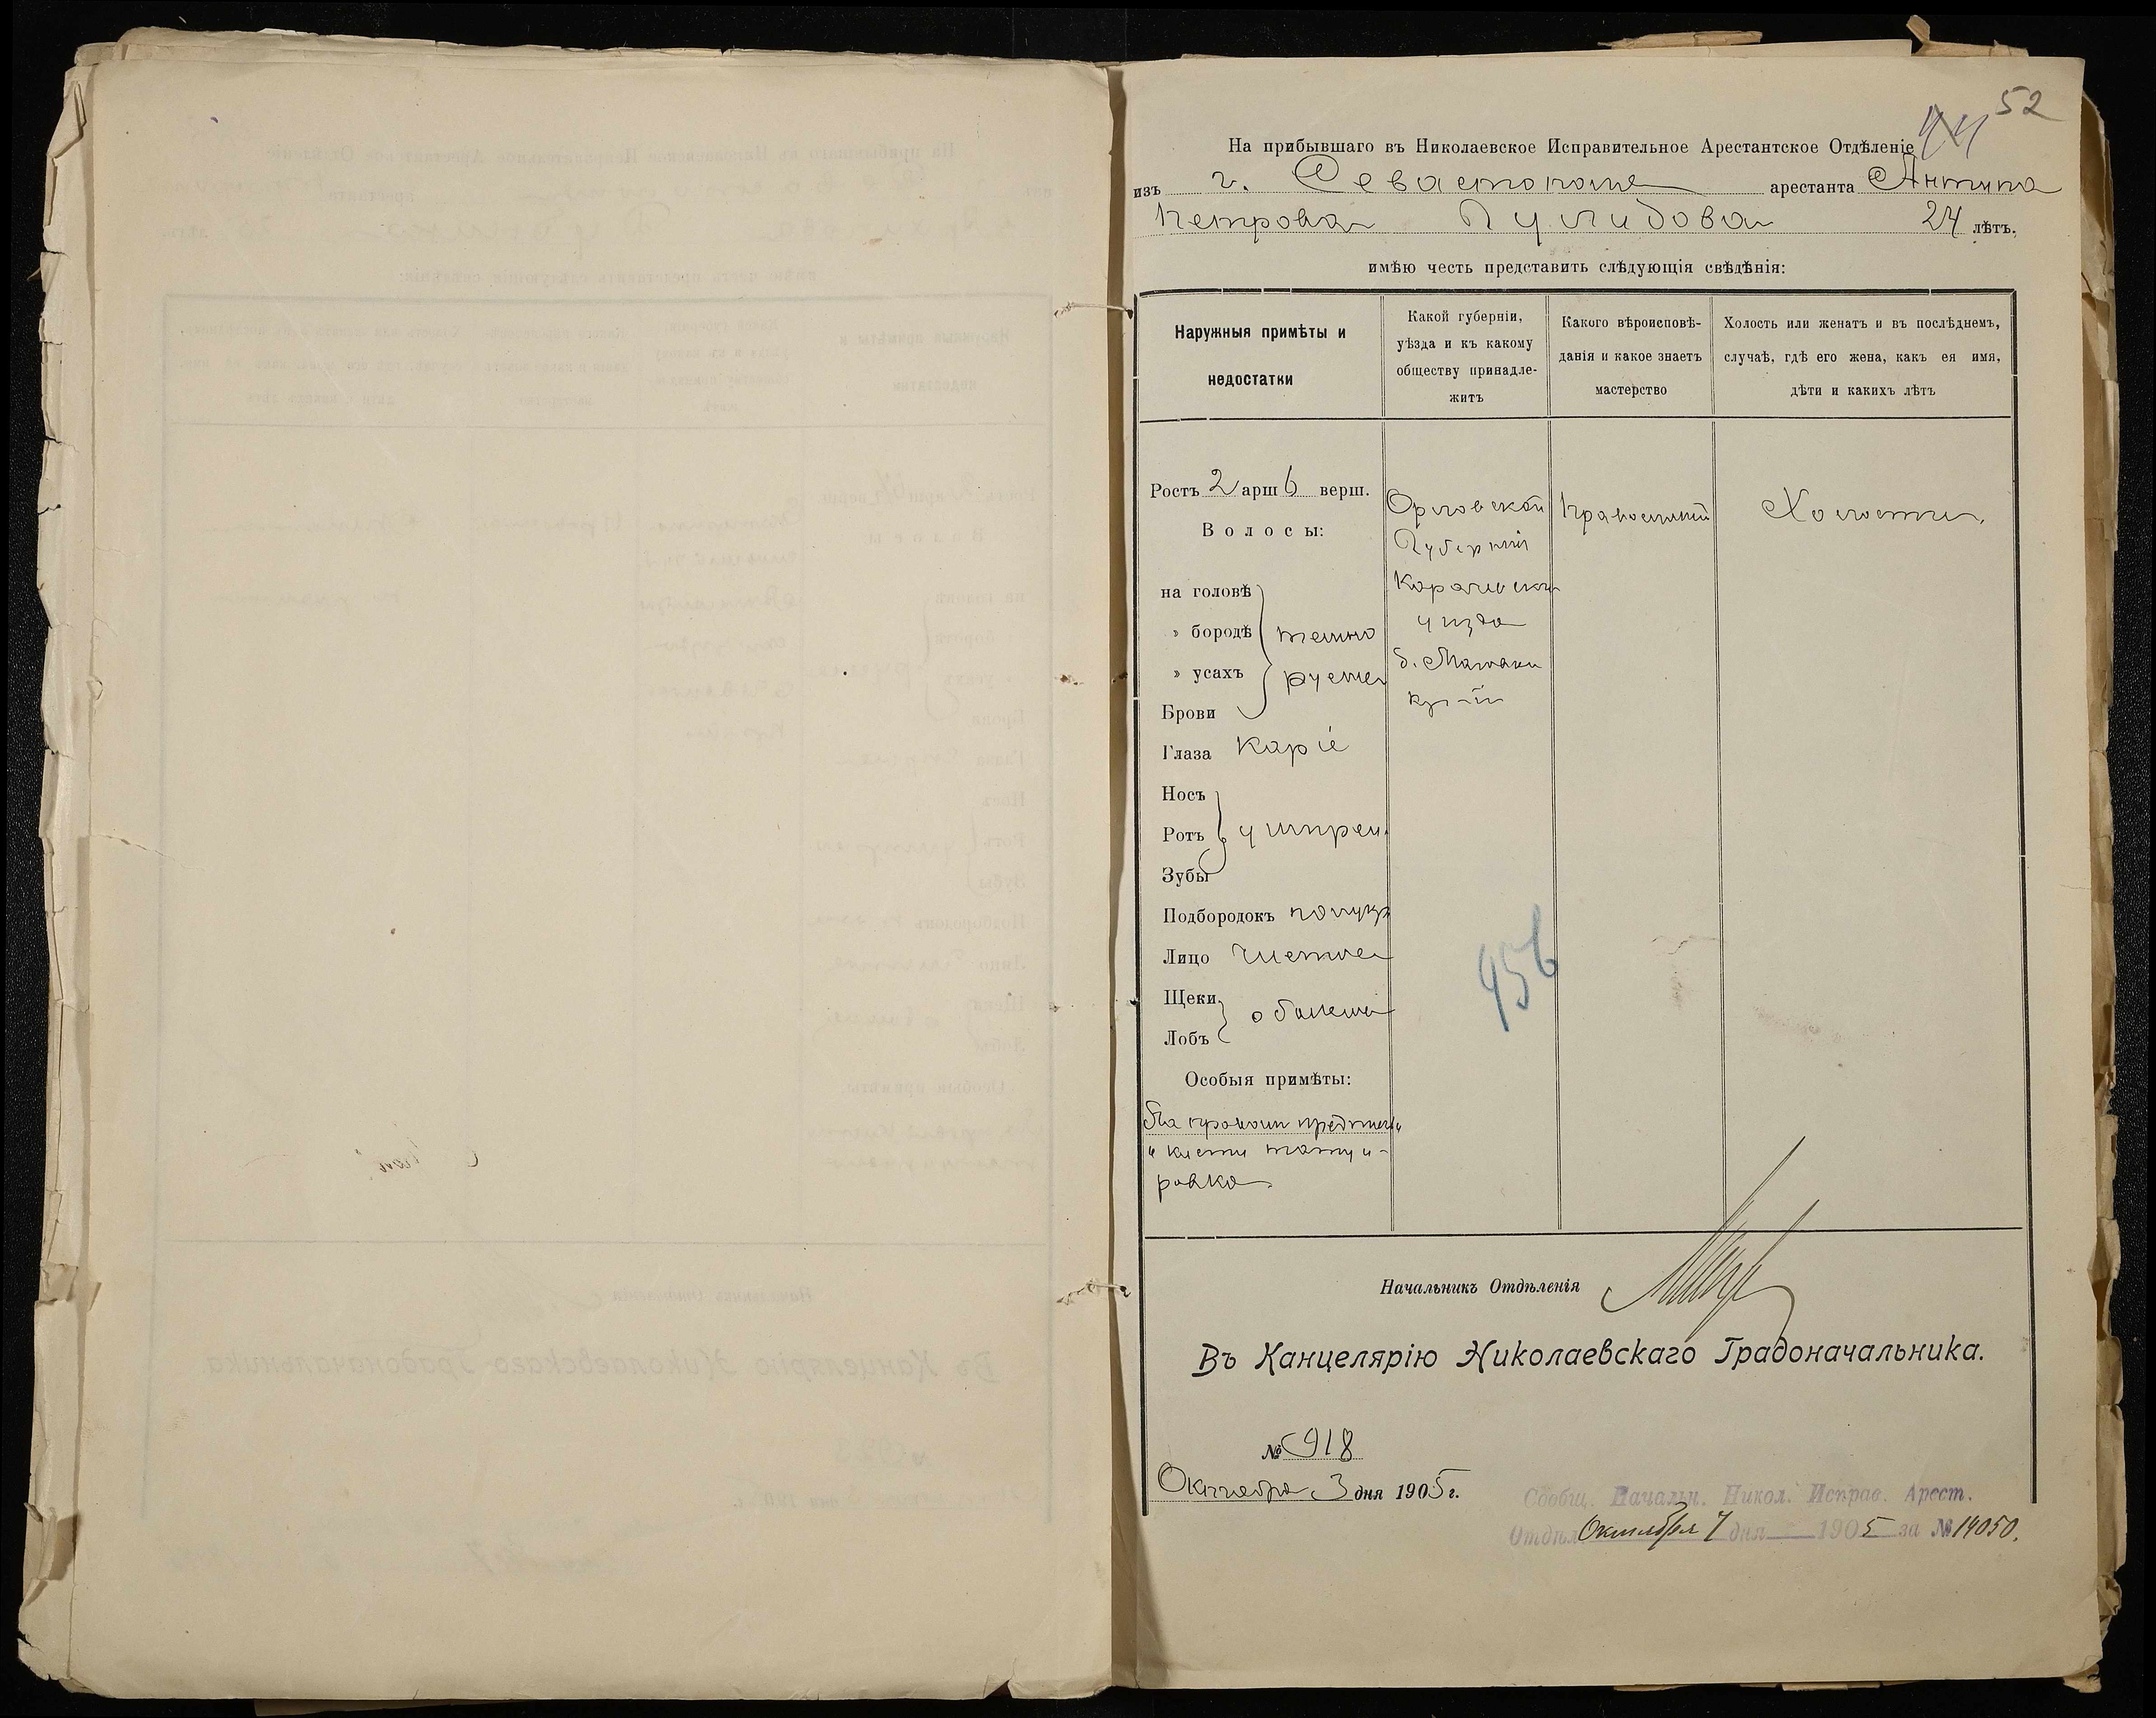 52
44
На прибывшаго въ Николаевское Исправительное Арестантское Отдѣленіе
изъ г. Севастополя арестанта Антипа
Петрова Гулидова 24 лѣтъ.
имѣю честь представить слѣдующія свѣдѣнія:
Наружныя примѣты и
недостатки
Какой губерніи,
уѣзда и къ какому
обществу принадле-
житъ
Какого вѣроисповѣ-
данія и какое знаетъ
мастерство
Холостъ или женатъ и въ послѣднемъ,
случаѣ, гдѣ его жена, какъ ея имя,
дѣти и какихъ лѣтъ
Ростъ 2 арш 6 верш.
Волосы:
на головѣ
» бородѣ темно
» усахъ русые
Брови
Глаза Каріе
Носъ
Ротъ умѣрен.
Зубы
Подбородокъ полукр
Лицо Чистое
Щеки
Лобъ обыкнов
Особыя примѣты:
На правомъ предплечьи
и кисти татуи-
ровка.
Орловской
Губерніи
Карачевск
уѣзда
Православный
Холостъ.
456
Начальникъ Отдѣленія
Въ Канцелярію Николаевскаго Градоначальника.
№ 918
Октября 3 дня 1905 г.
Сообщ. Начальн. Никол. Исправ. Арест.
Отдѣл. Октября 7 дня 1905 за № 14050.